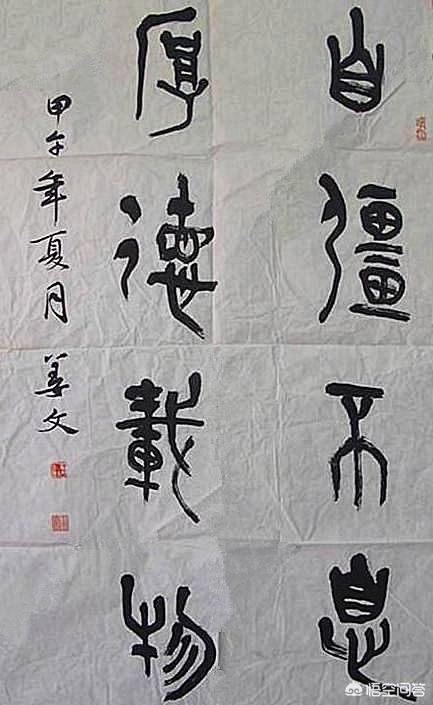 自彊不息
厚德載物
甲午年夏月 姜文
悟空问答